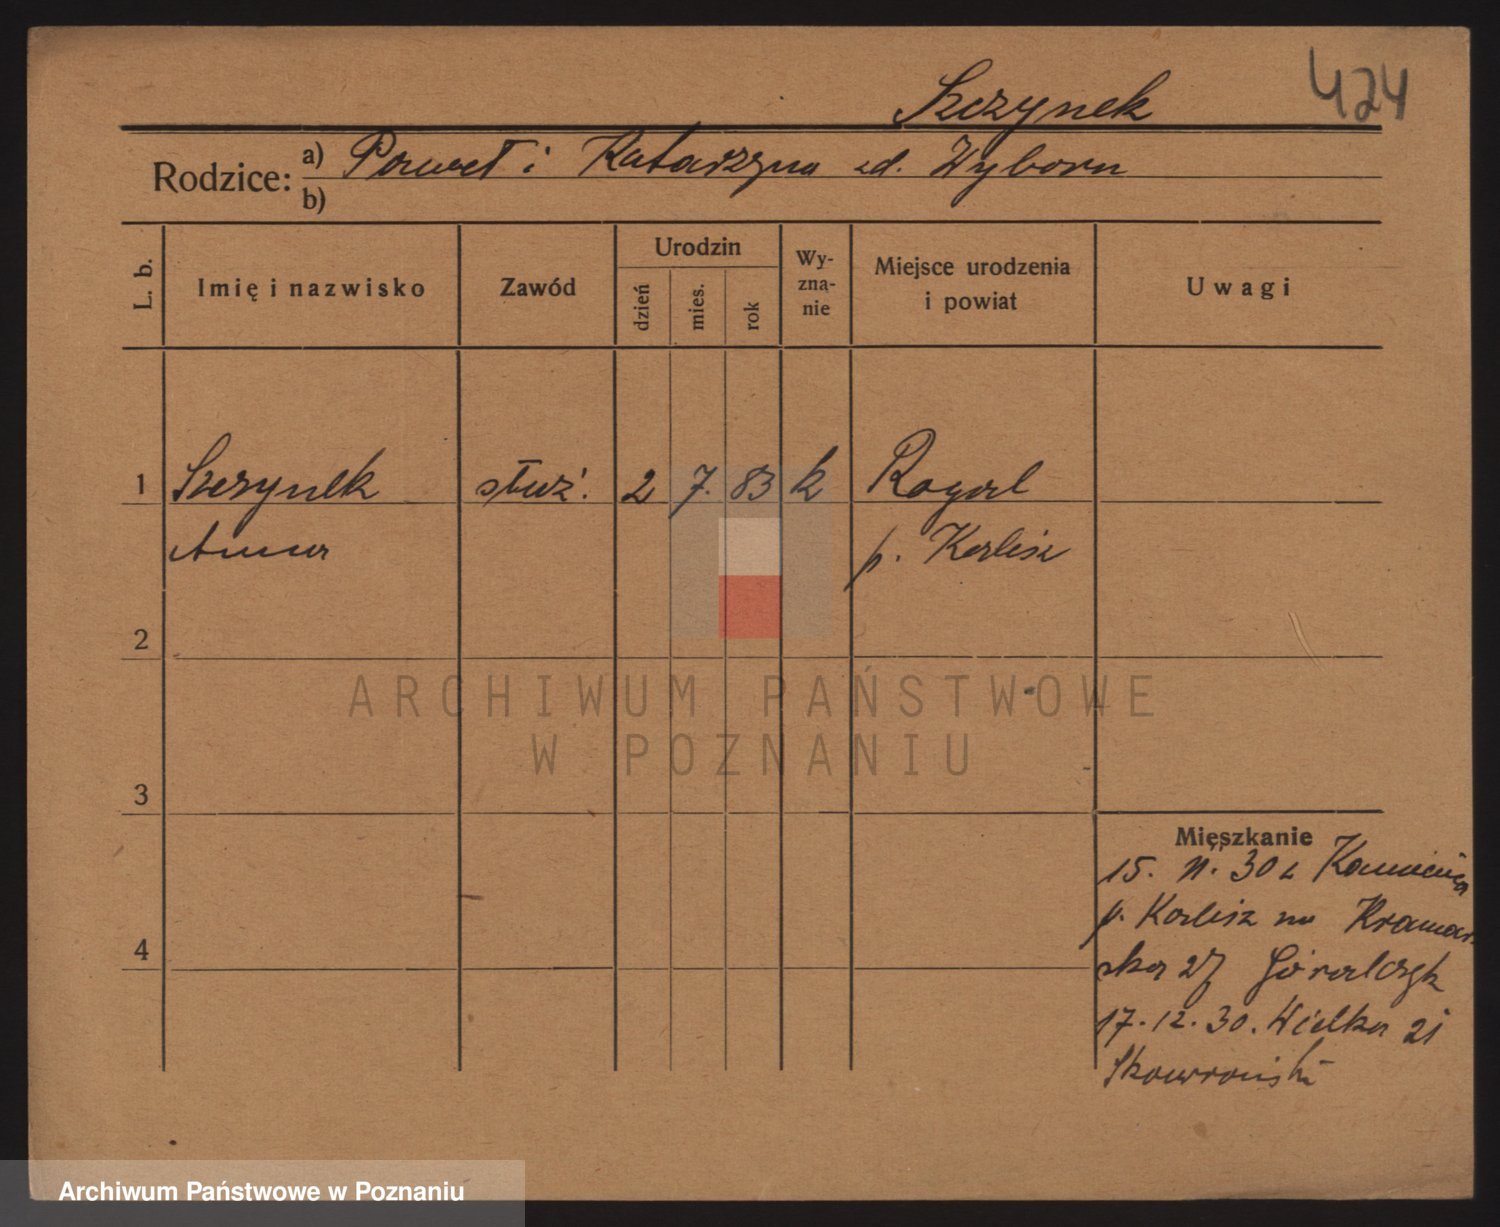 Szczynek
424
Rodzice:
a) Paweł i Katarzyna zd. Wyborn
b)
L. b.
Imię i nazwisko
Zawód
Urodzin
dzień
mies.
rok
Wy-
zna-
nie
Miejsce urodzenia
i powiat
Uwagi
1 Szczynek służ. 2 7. 83 k
Anna p. Kalisz
2
ARCHIWUM PAŃSTWOWE
W POZNANIU
3
Mieszkanie
15. 11. 30 z
p. Kalisz na Kramar
ska 27 Góralczyk
4
17. 12. 30. Wielka 21
Skowroński
Archiwum Państwowe w Poznaniu